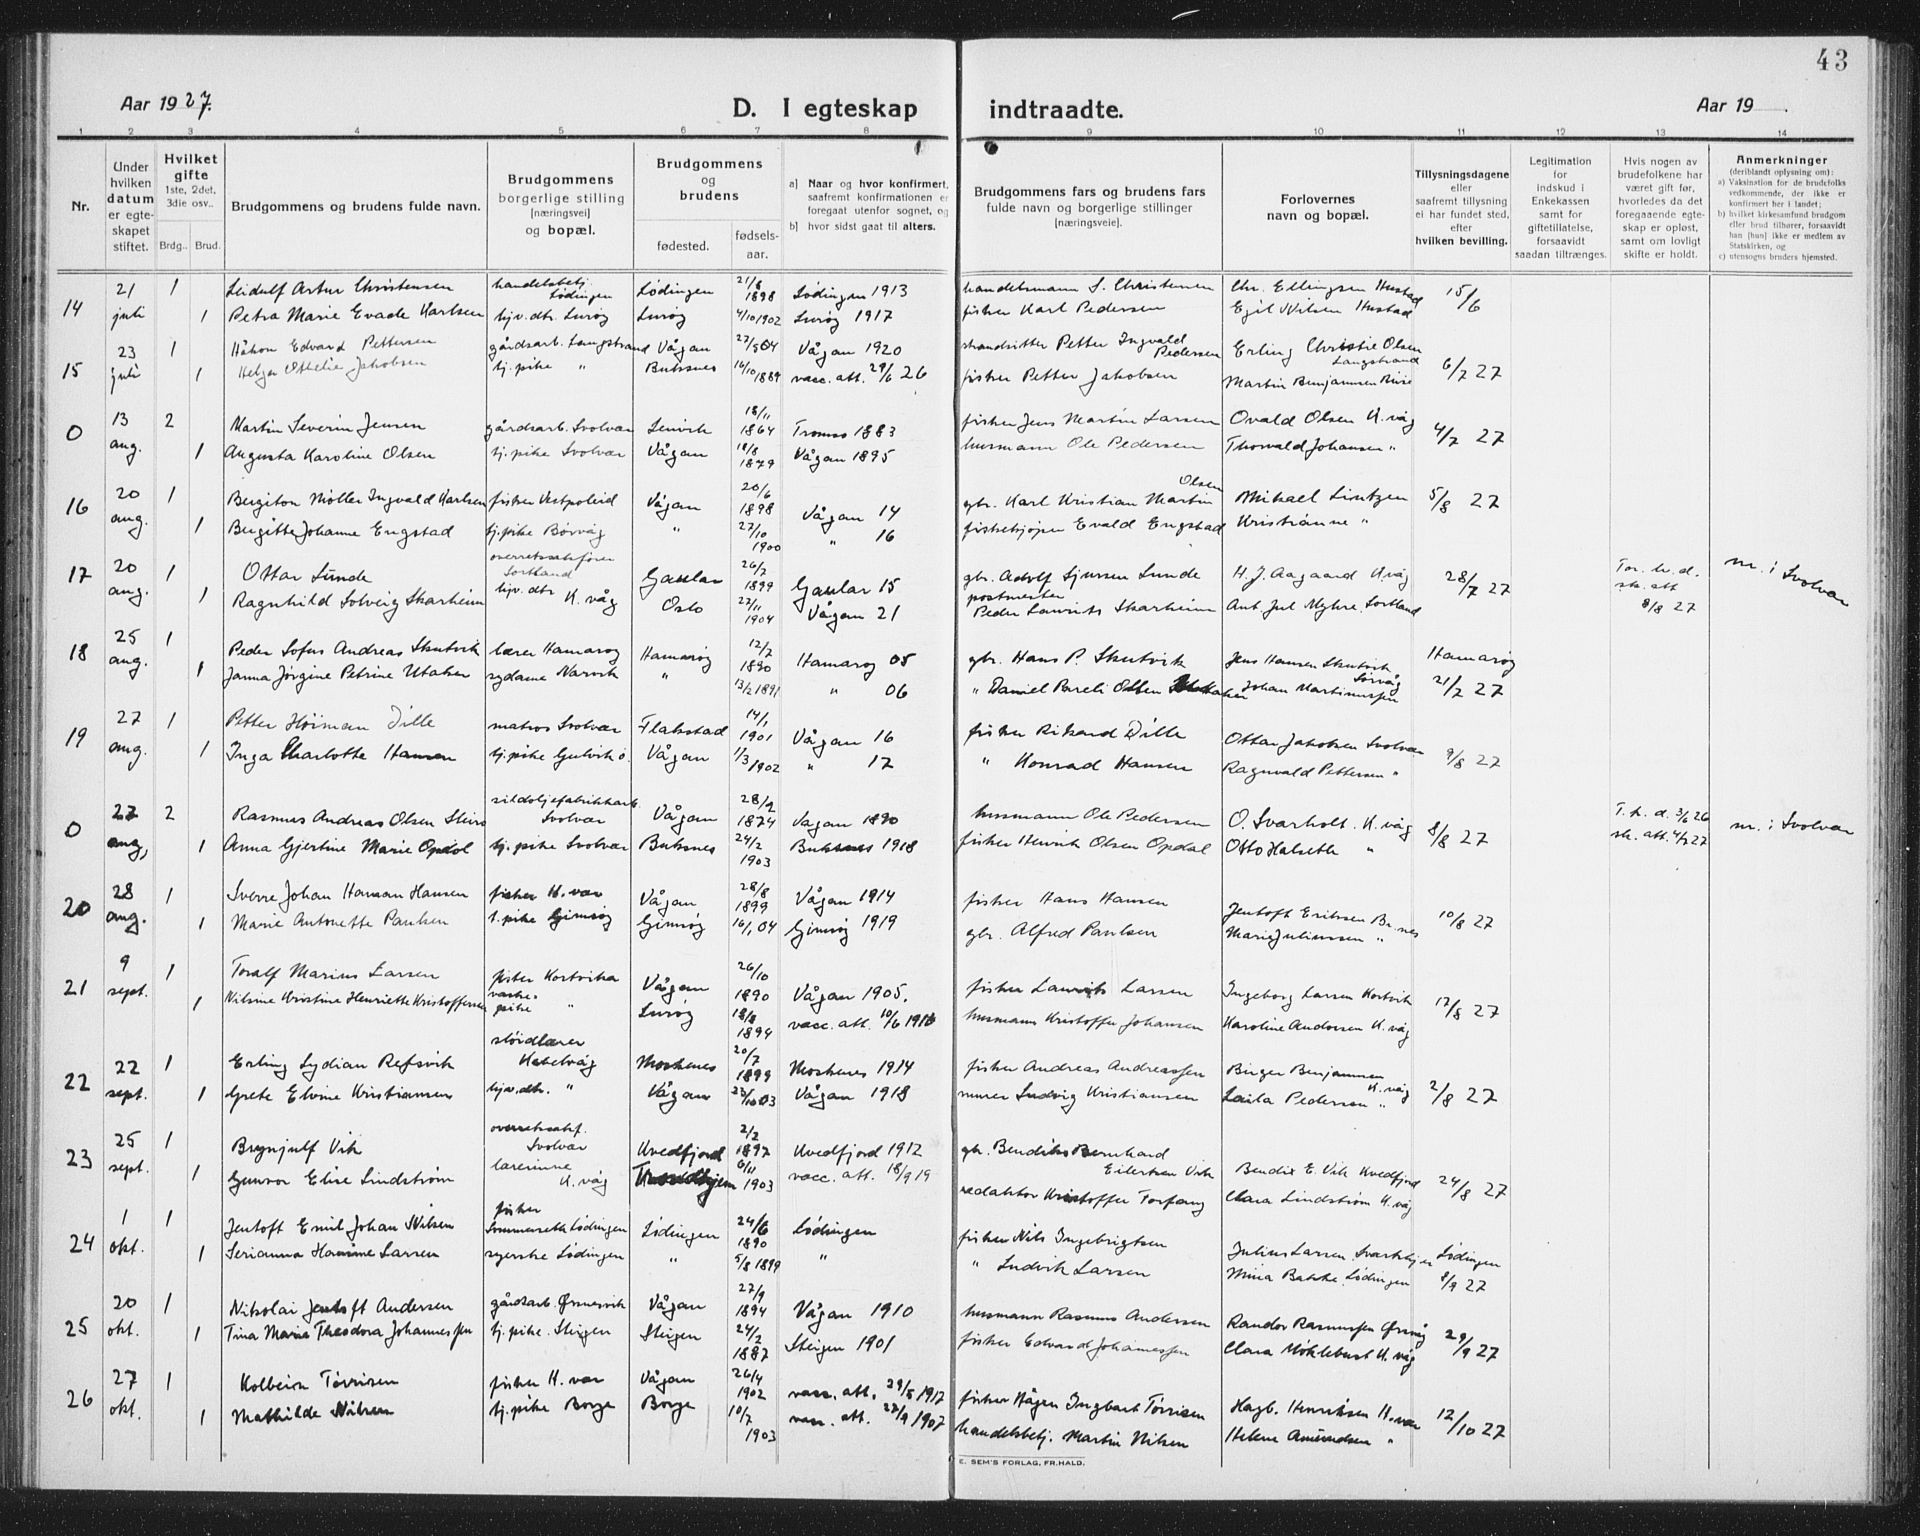 43
Aar 1927.
D. I egteskap indtraadte.
Aar 19
1 2 3 4 5 6 7 8 9 10 11 12 13 14
Nr.
Under hvilken datum er egteskapet stiftet.
Hvilket gifte 1ste, 2det, 3die osv..
Brdg.. Brud.
Brudgommens og brudens fulde navn.
Brudgommens borgerlige stilling [næringsvei] og bopæl.
Brudgommens og brudens
fødested.
fødselsaar.
a] Naar og hvor konfirmert, saafremt konfirmationen er foregaat utenfor sognet, og
b] hvor sidst gaat til alters.
Brudgommens fars og brudens fars fulde navn og borgerlige stillinger [næringsveie].
Forlovernes navn og bopæl.
Tillysningsdagene eller saafremt tillysning ei har fundet sted, efter hvilken bevilling.
Legitimation for indskud i Enkekassen samt for giftetillatelse, forsaavidt saadan tiltrænges.
Hvis nogen av brudefolkene har været gift før, hvorledes da det foregaaende egteskap er opløst, samt om lovligt skifte er holdt.
Anmerkninger (deriblandt oplysning om):
a) Vaksination for de brudefolks vedkommende, der ikke er konfirmert her i landet;
b) hvilket kirkesamfund brudgom eller brud tilhører, forsaavidt han [hun] ikke er medlem av Statskirken, og
c) utensogns bruders hjemsted.
14 21 juli 1 Leidulf Artur Christensen handelsbetj. Lødingen Lødingen 21/8 1898 Lødingen 1913 handelsmann S. Christensen Chr. Ellingsen Hustad 15/6
1 Petra Marie Evade Karlsen hjv. dtr. Lurøy Lurøy 4/10 1902 Lurøy 1917 fisker Karl Pedersen Egil Nilsen Hustad
15 23 juli 1 Håkon Edvard Pettersen gårdsarb. Langstrand Vågan 27/5 04 Vågan 1920 strandsitter Petter Ingvald Pedersen Erling Christie Olsen Langstrand 6/7 27
1 Helga Othelie Jakobsen tj. pike " Buksnes 16/10 1889 vacc. att. 29/6 26 fisker Petter Jakobsen Martin Benjaminsen
0 13 aug. 2 Martin Severin Jensen gårdsarb. Svolvær Lenvik 18/11 1864 Tromsø 1883 fisker Jens Martin Larsen Ovald Olsen K.våg 4/7 27
1 Augusta Karoline Olsen tj. pike Svolvær Vågan 18/8 1879 Vågan 1895 husmann Ole Pedersen Thorvald Johansen "
16 20 aug. 1 Bergiton Møller Ingvald Karlsen fisker Vestpoleid Vågan 20/6 1898 Vågan 14 gbr. Karl Kristian Martin Olsen Mikael Lintzen 5/8 27
1 Bergitte Johanne Engstad tj. pike Børvåg " 27/10 1900 " 16 fiskekjøper Evald Engstad Kristianne "
17 20 aug. 1 Ottar Lunde overretssakfører Sortland Gaular 26/7 1899 Gaular 15 gbr. Adolf Sjursen Lunde H. J. Aagaard K.våg 28/7 27 Tor. h. d. sk. att 8/8 27 m. i Svolvær
1 Ragnhild Solveig Skarheim hjv. dtr K.våg Oslo 27/11 1904 Vågan 21 postmester Peder Laurits Skarheim Ant. Jul Myhre, Sortland
18 25 aug. 1 Peder Sofus Andreas Skutvik lærer Hamarøy Hamarøy 12/7 1890 Hamarøy 05 gbr. Hans P. Skutvik Jens Hansen Skutvik Hamarøy 21/7 27
1 Janna Jørgine Petrine Utaker sydame Narvik " 13/2 1891 " 06 " Daniel Pareli Olsen Johan Martinussen Sørvåg
19 27 aug. 1 Petter Heiman Dille matros Svolvær Flakstad 14/1 1901 Vågan 16 fisker Rikard Dille Ottar Jakobsen Svolvær 9/8 27
1 Inga Charlotte Hansen tj. pike Gulvik ø. Vågan 1/3 1902 " 17 " Konrad Hansen Ragnvald Pettersen "
0 27 aug, 2 Rasmus Andreas Olsen Steiro sildoljefabrikkarb. Svolvær Vågan 28/2 1874 Vågan 1890 husmann Ole Pedersen O. Svarholt. K.våg 8/8 27 T. h. d. 3/6 26 sk. att. 4/7 27 m. i Svolvær
1 Anna Gjertine Marie Opdøl tj. pike Svolvær Buksnes 24/2 1903 Buksnes 1918 fisker Henrik Olsen Opdal Otto Halseth "
20 28 aug. 1 Sverre Johan Haman Hansen fisker H. vær Vågan 28/8 1899 Vågan 1914 fisker Hans Hansen Jentoft Eriksen Br.nes 10/8 27
1 Marie Antonette Paulsen t. pike Gimsøy Gimsøy 16/1 04 Gimsøy 1919 gbr. Alfred Paulsen Marie Juliussen "
21 9 sept. 1 Toralf Marius Larsen fisker Kortvika Vågan 26/10 1890 Vågan 1905. fisker Laurits Larsen Ingeborg Larsen Kortvik 17/8 27
1 Nilsine Kristine Henriette Kristoffersen vaskepike " Lurøy 18/8 1894 vacc. att. 10/6 1916 husmann Kristoffer Johansen Karoline Andorsen K. våg
22 22 sept. 1 Erling Lydian Refsvik sløidlærer Kabelvåg Moskenes 20/7 1899 Moskenes 1914 fisker Andreas Andreassen Birger Benjaminsen K.våg 2/8 27
1 Grete Elvine Kristiansen hjv. dtr. " Vågan 23/10 03 Vågan 1918 murer Ludvig Kristiansen Laila Pedersen "
23 25 sept. 1 Brynjulf Vik overretssakf. Svolvær Kvedfjord 2/2 1897 Kvedfjord 1912 gbr. Bendiks Bernhard Eilertsen Vik Bendix E. Vik Kvedfjord 24/8 27
1 Gunvor Elise Lindstrøm lærerinne K. våg Trondhjem 6/11 1903 vacc. att. 18/9 19 redaktør Kristoffer Torfang Clara Lindstrøm K.våg
24 1 okt. 1 Jentoft Emil Johan Nilsen fisker Sommerseth Lødingen Lødingen 24/6 1890 Lødingen fisker Nils Ingebrigtsen Julius Larsen Svartskjer Lødingen 8/9 27
1 Serianna Hansine Larsen syerske Lødingen " 5/8 1899 " " Ludvik Larsen Mina Bakke Lødingen
25 20 okt. 1 Nikolai Jentoft Andersen gårdsarb. Ørsnesvik Vågan 27/9 1894 Vågan 1910 husmann Rasmus Andersen Randor Rasmussen Ørsvåg 29/9 27
1 Tina Maria Theodora Johannessen tj. pike. Steigen Steigen 24/2 1887 Steigen 1901 fisker Edvard Johannessen Clara Møklebust K. våg
26 27 okt. 1 Kolbein Tørrisen fisker H. vær Vågan 26/4 1902 vacc. att. 29/5 1917 fisker Hågen Ingbart Tørrisen Hagb. Henriksen H. vær 12/10 27
1 Mathilde Nilsen tj. pike Borge Borge 10/7 1903 vacc. att. 27/9 1907 handelsbetj. Martin Nilsen Helene Amundsen "
E. SEM'S FORLAG, FR.HALD.